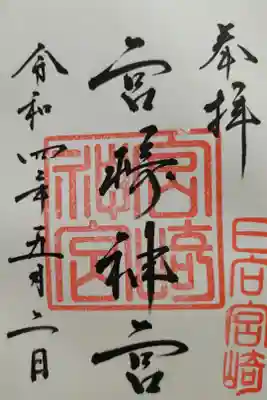 奉拝
日向宮崎
宮崎神宮
宮崎
神宮
令和四年五月六日